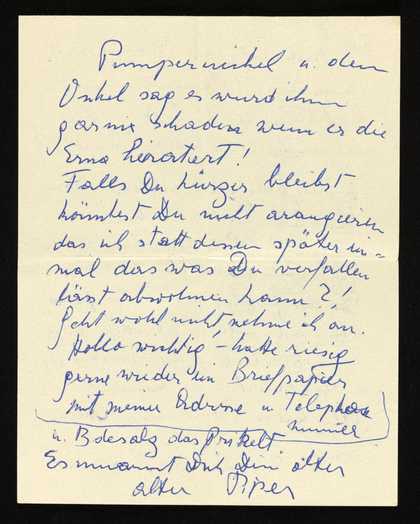 Pumpernickel u. dem
Onkel sag es wurd ihm
garnix schaden wenn er die
Erna heiratert!
Falls Du kürzer bleibst
könntest Du nicht arangieren
das ich statt dessen später in=
mal das was Du verfallen
lässt abwohnen kann?!
Geht wohl nicht nehme ich an.
Hallo wichtig! – hätte riesig
gerne wieder ein Briefpapier
mit meiner Adresse u. Telephon
nummer
u. Badesalz das
Es umarmt Dich Dein alter
alter Piper